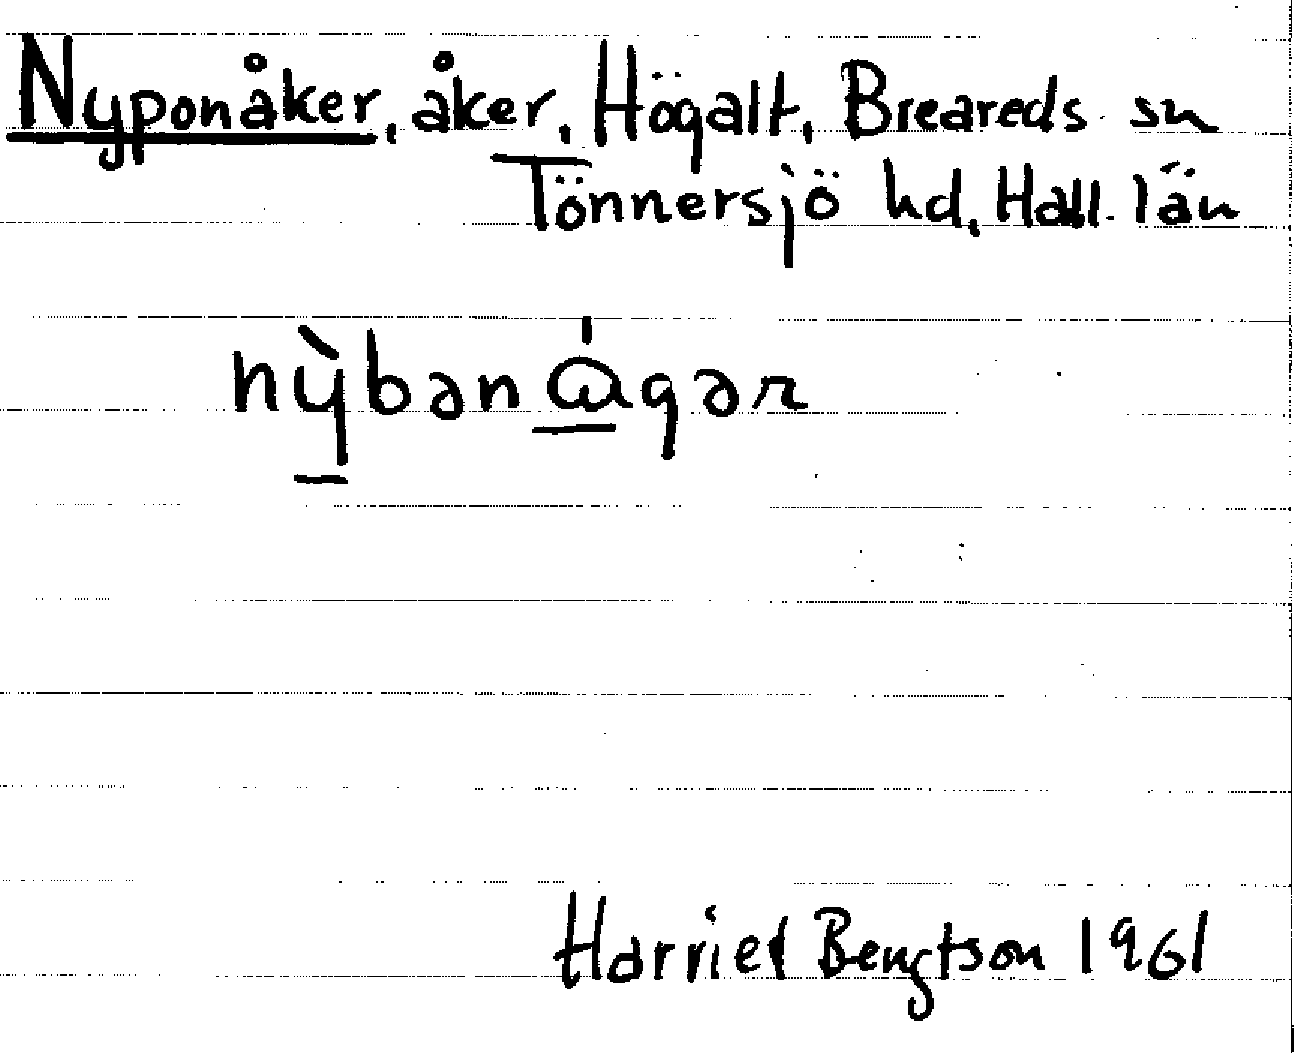 Nyponåker, åker, Högalt, Breareds sn
Tönnersjö hd, Hall. län
nỳbənágər
Harriet Bengtson 1961